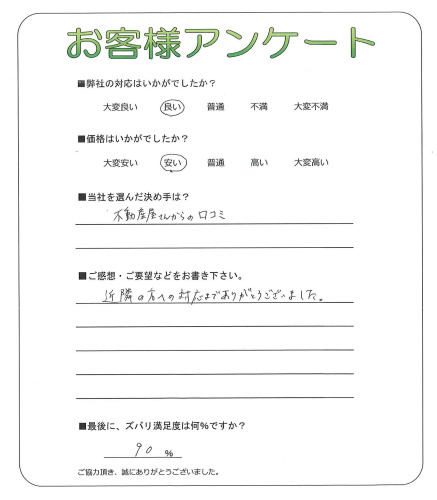 お客様アンケート
■弊社の対応はいかがでしたか?
大変良い 良い 普通 不満 大変不満
■価格はいかがでしたか?
大変安い 安い 普通 高い 大変高い
■当社を選んだ決め手は?
不動産屋さんからの口コミ
■ご感想・ご要望などをお書き下さい。
近隣の方への対応までありがとうございました。
■最後に、ズバリ満足度は何%ですか?
90 %
ご協力頂き、誠にありがとうございました。